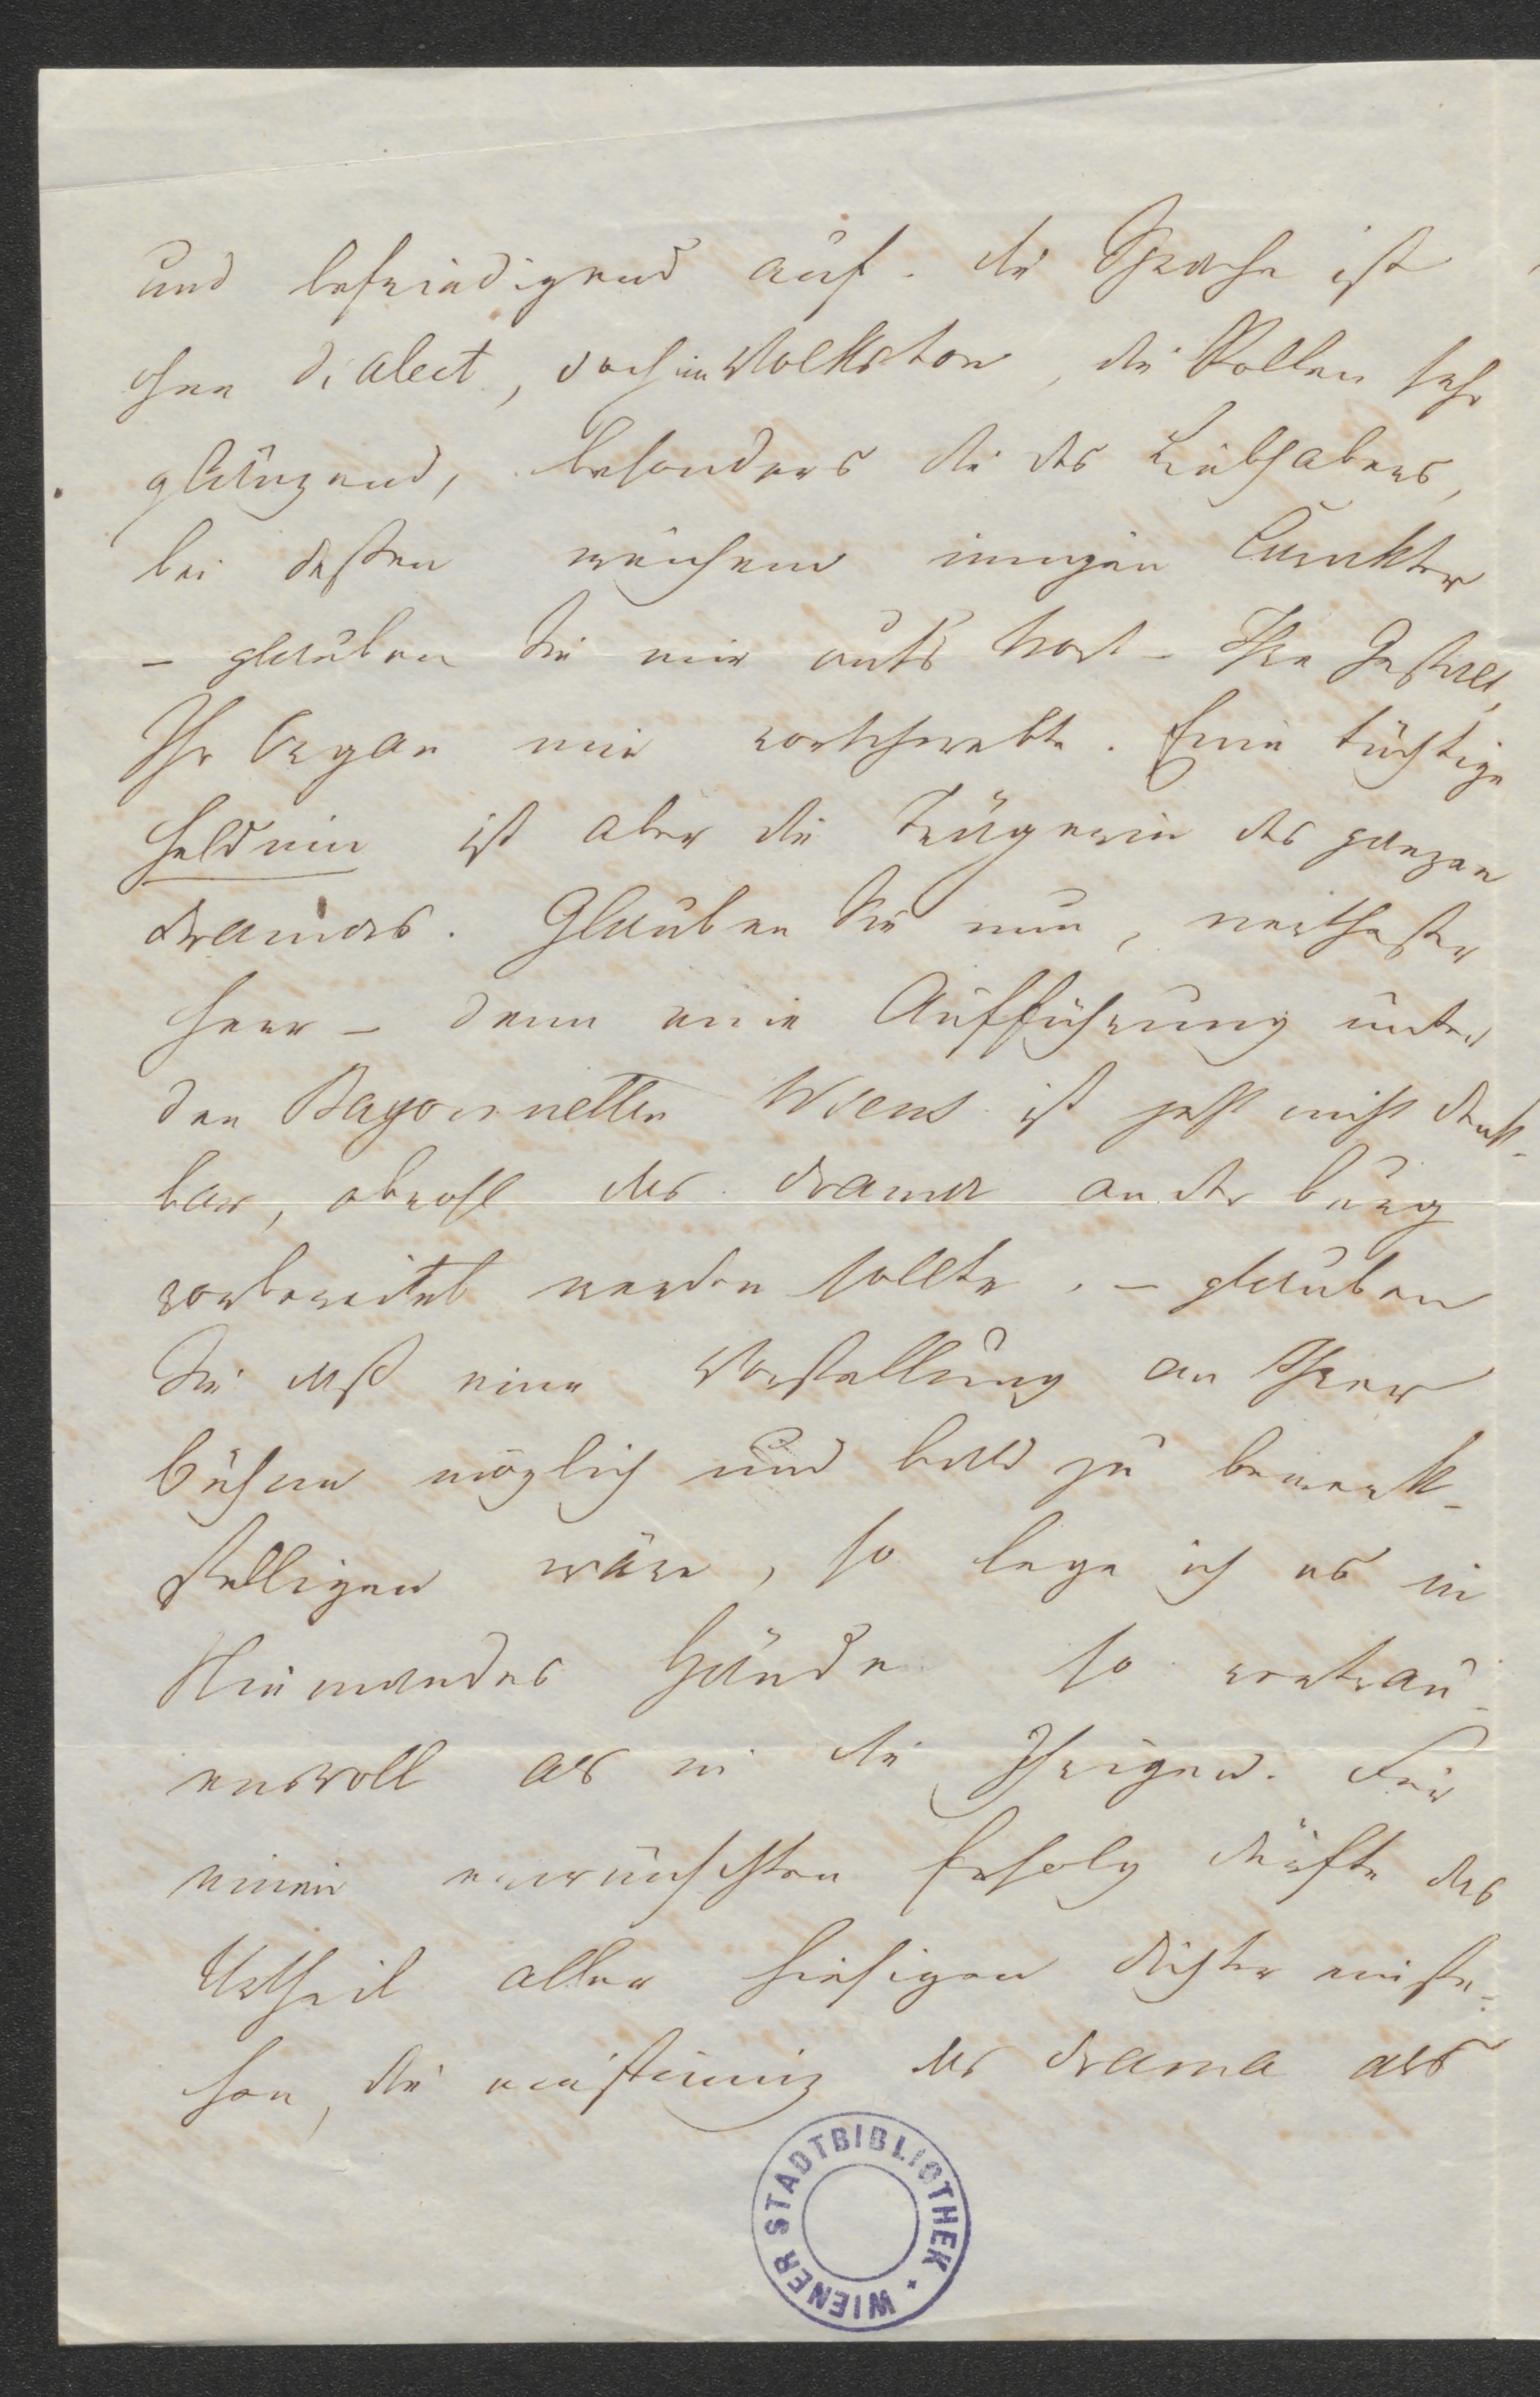 und befriedigend auf. die Sprache ist
ohne Dialect, doch im Volkston, die Rollen sehr
glänzend, besonders die des Liebhabers,
bei deßen weichem innigen Carakter
– glauben Sie mir aufs Wort – Ihre Gestalt,
Ihr Organ mir vorschwebte. Eine tüchtige
Heldnin ist aber die Trägerin des ganzen
dramas. Glauben Sie nun, werthester
Herr – denn eine Aufführung unter
den Bayonnetten Wiens ist jetzt nicht denk-
bar, obwohl das drama an der Burg
vorbereitet werden sollte, – glauben
Sie daß eine Vorstellung an Ihrer
Bühne möglich und bald zu bewerk-
stelligen wäre, so lege ich es in
Niemandes Hände so vertrau-
ensvoll als in die Ihrigen. Für
einen erwünschten Erfolg dürfte das
Urtheil aller hiesigen dichter einste-
hen, die einstimmig das drama als
WIENER STADTBIBLIOTHEK